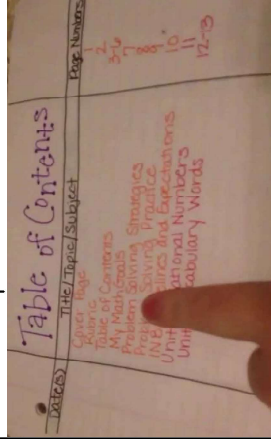 Table of Contents
Date(s) Title/Topic/Subject Page Numbers
Cover Page 1
Rubric 2
Table of Contents 3-6
My Math Goals 7
Problem Solving Strategies 8
Solving Practice 9
lines and Expectations 10
Unit ational Numbers 11
Unit cabulary Words 12-13